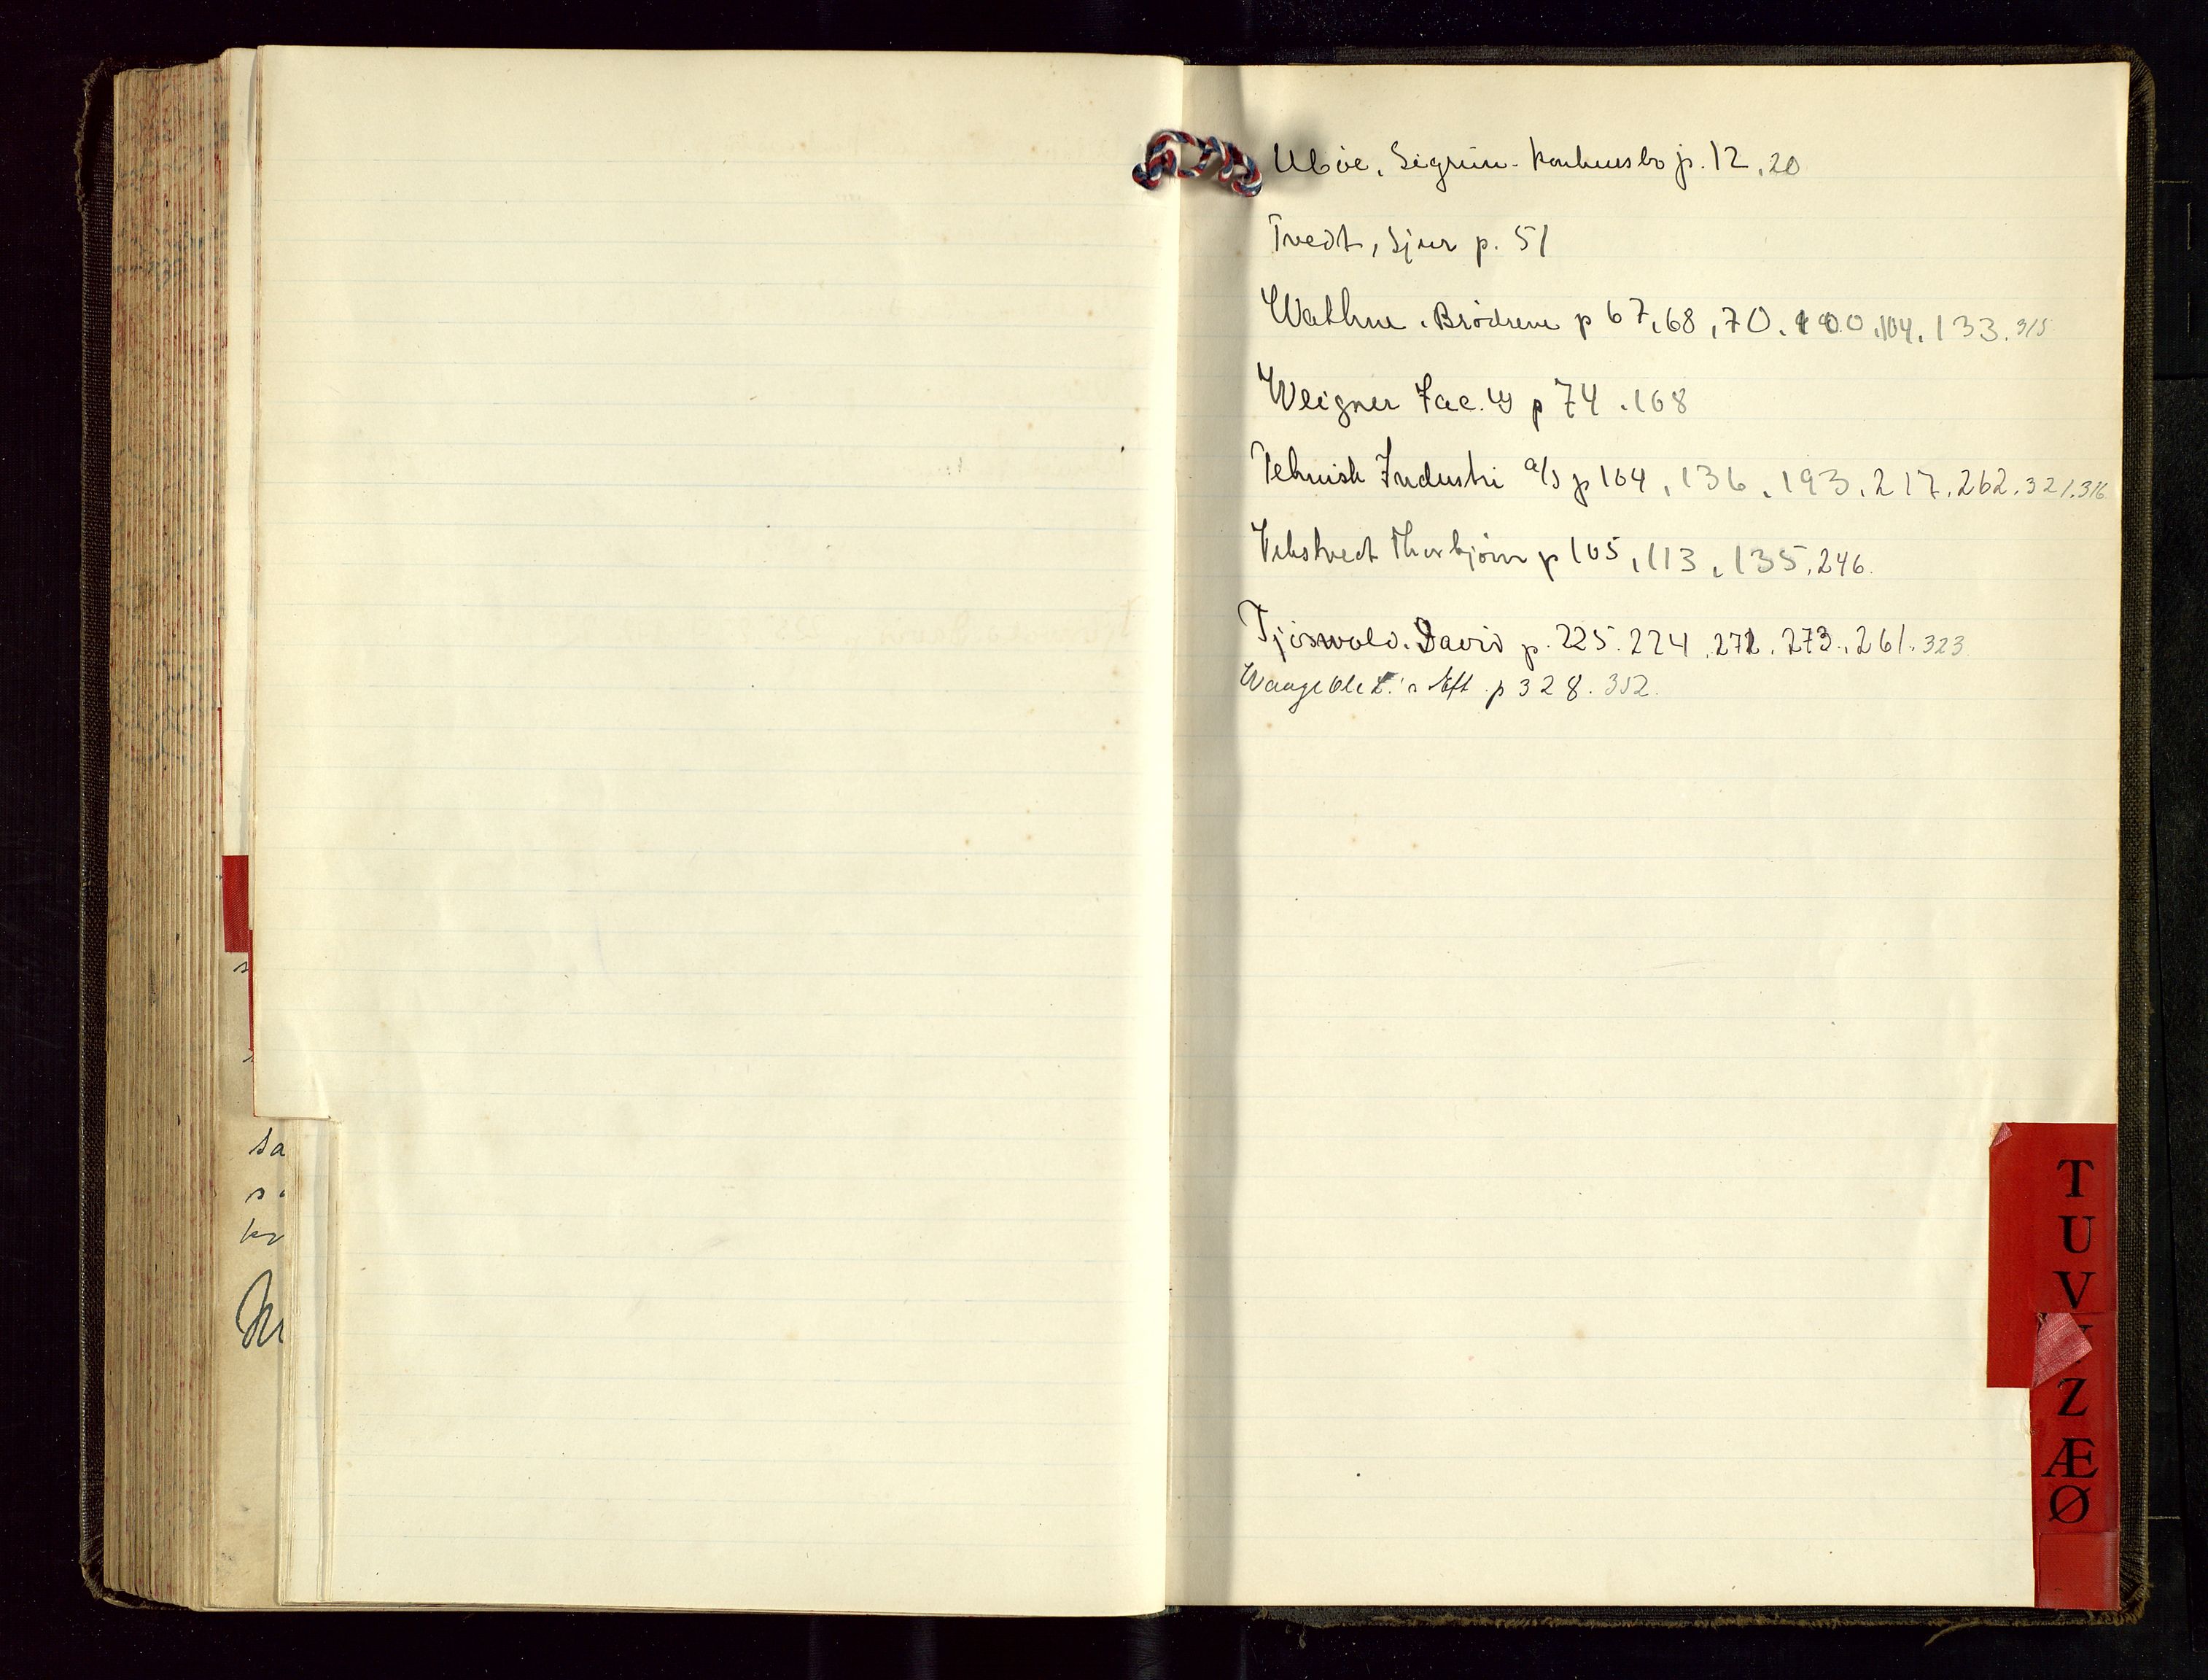 sa
s.
kr
Uböe, Sigrun - konkursbo p. 12, 20
Tvedt, Sjur p. 51
Wathne, Brödrene p 67, 68, 70, 100, 104, 133, 315
Weigner Jac. p 74, 168
Teknisk Industri a/s p 104, 136, 193, 217, 262, 321, 316
Vikstvedt Thorbjörn p 105, 113, 135, 246.
Tjöswold, David p. 225. 224, 272, 273, 261, 323
Waage Ole L.'s Eft p 328. 352.
T
U
V
Z
Æ
Ø